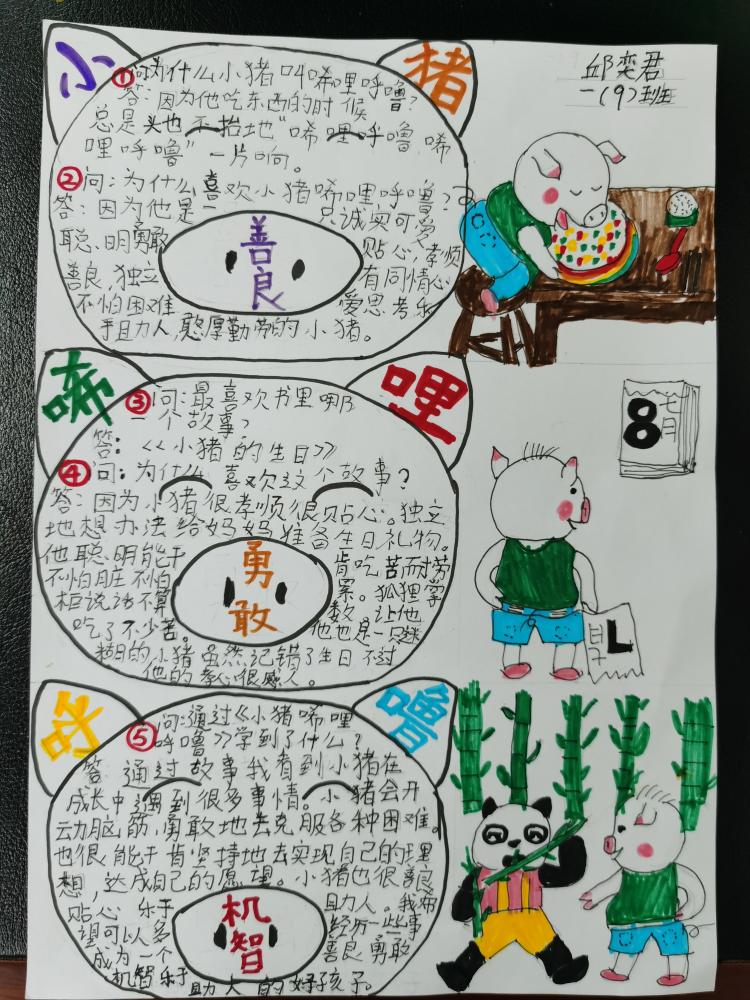 小
猪
①问:为什么小猪叫唏哩呼噜?
答:因为他吃东西的时候
总是头也不抬地“唏哩呼噜,唏
哩呼噜”一片响。
②问:为什么喜欢小猪唏哩呼噜?
答:因为他是一只诚实可爱
聪明勇敢 贴心,孝顺
善良,独立 有同情心,
不怕困难 爱思考乐
于助人,憨厚勤劳的小猪。
善良
邱奕君
一(9)班
唏
哩
③问:最喜欢书里哪
一个故事?
答:《小猪的生日》
④问:为什么喜欢这个故事?
答:因为小猪很孝顺很贴心。独立
地想办法给妈妈准备生日礼物。
他聪明能干 肯吃苦而耐劳
不怕脏不怕 累。狐狸掌
柜说话不算 数 让他
吃了不少苦。 他也是一只迷
糊的小猪虽然记错了生日不过
他的孝心很感人。
勇敢
8
七月
呼
噜
⑤问:通过《小猪唏哩
呼噜》学到了什么?
答:通过故事我看到小猪在
成长中遇到很多事情。小猪会开
动脑筋,勇敢地去克服各种困难。
也很能干肯坚持地去实现自己的理
想,达成自己的愿望。小猪也很善良
贴心 乐于 助人。我希
望可以多 经历一些事
成为一个 善良勇敢
机智乐于助人的好孩子。
机智